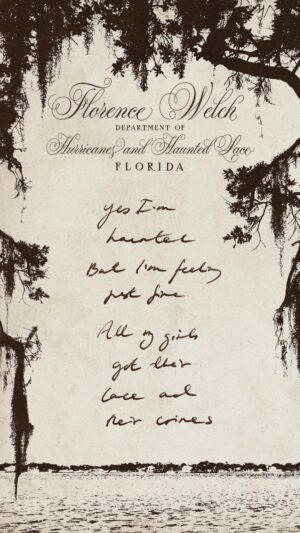 Florence Welch
DEPARTMENT OF
Hurricanes and Haunted Lace
FLORIDA
yes I'm
haunted
But I'm feeling
just fine
All my girls
got their
lace and
their crimes